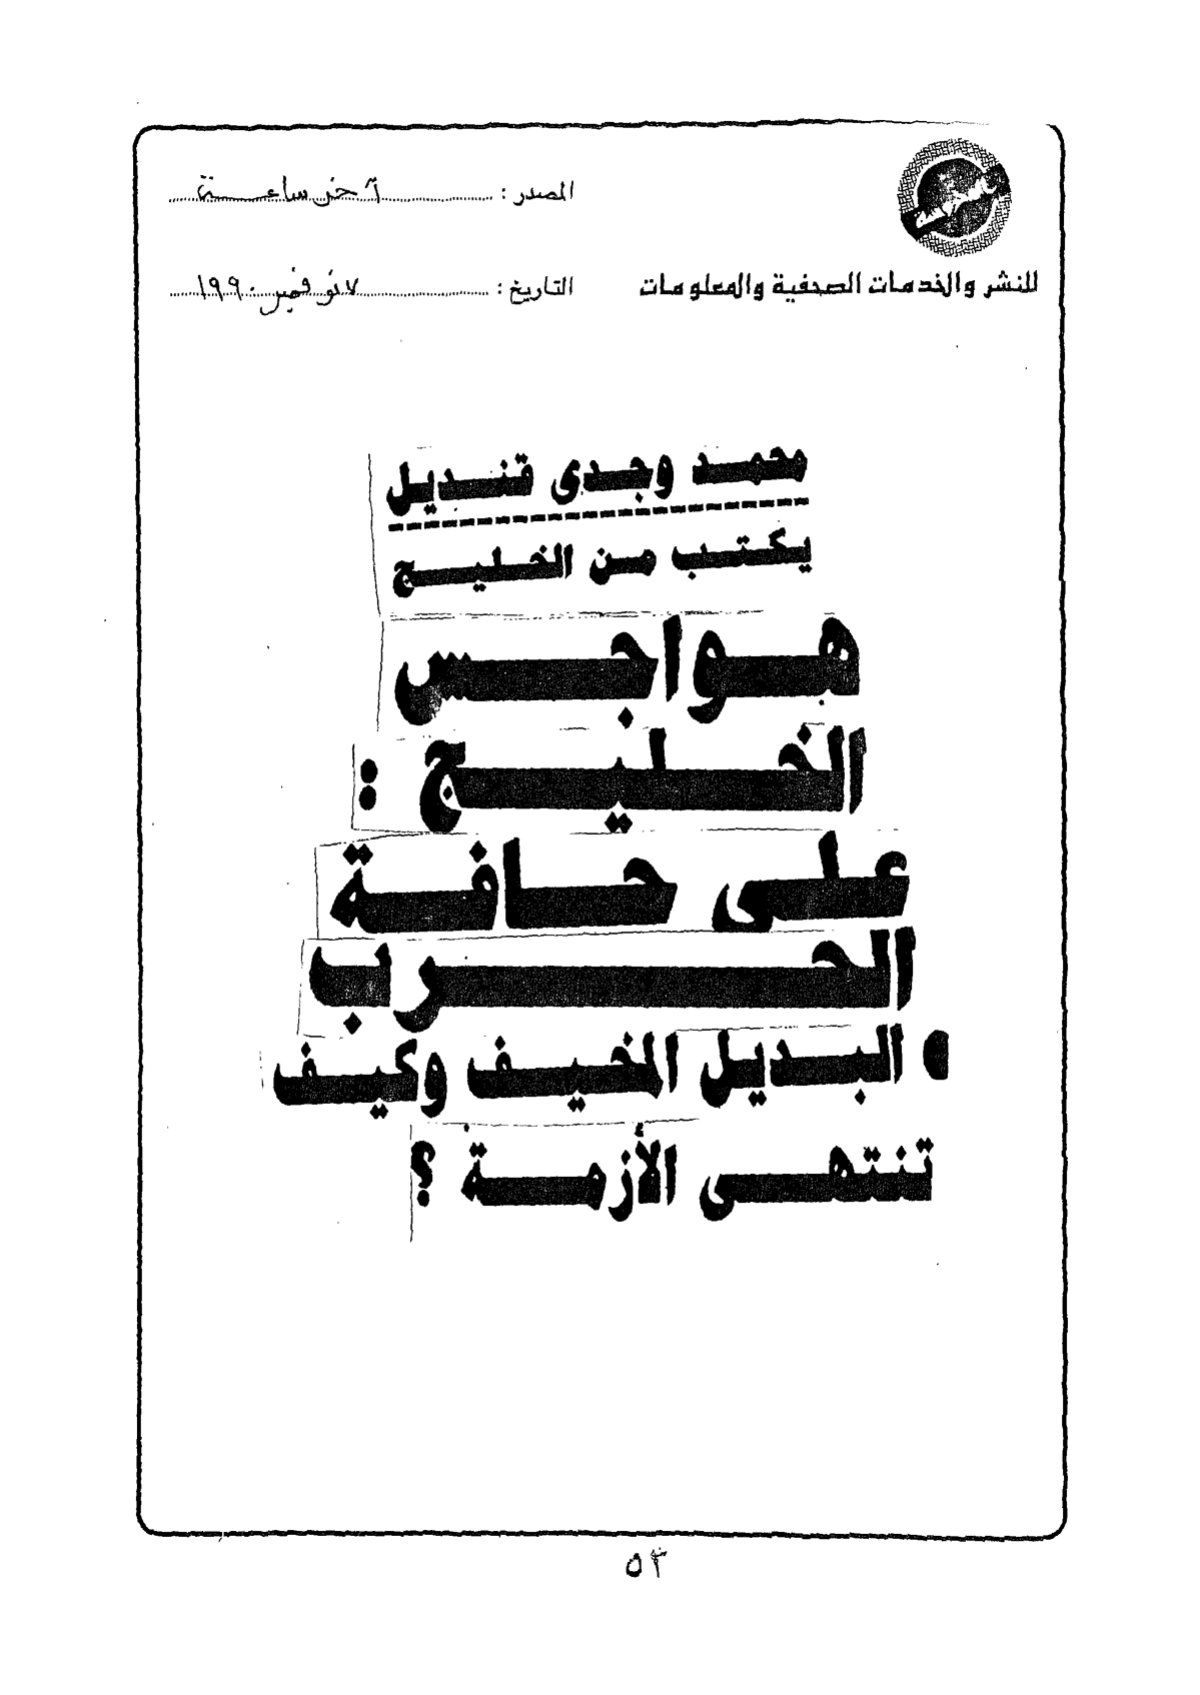 المصدر : آخر ساعة
للنشر والخدمات الصحفية والمعلومات
التاريخ : ٧ نوفمبر ١٩٩٠
محمد وجدى قنديل
يكتب من الخليج
هواجس
الخليج :
على حافة
الحرب
● البديل المخيف وكيف
تنتهى الأزمة ؟
٥٣